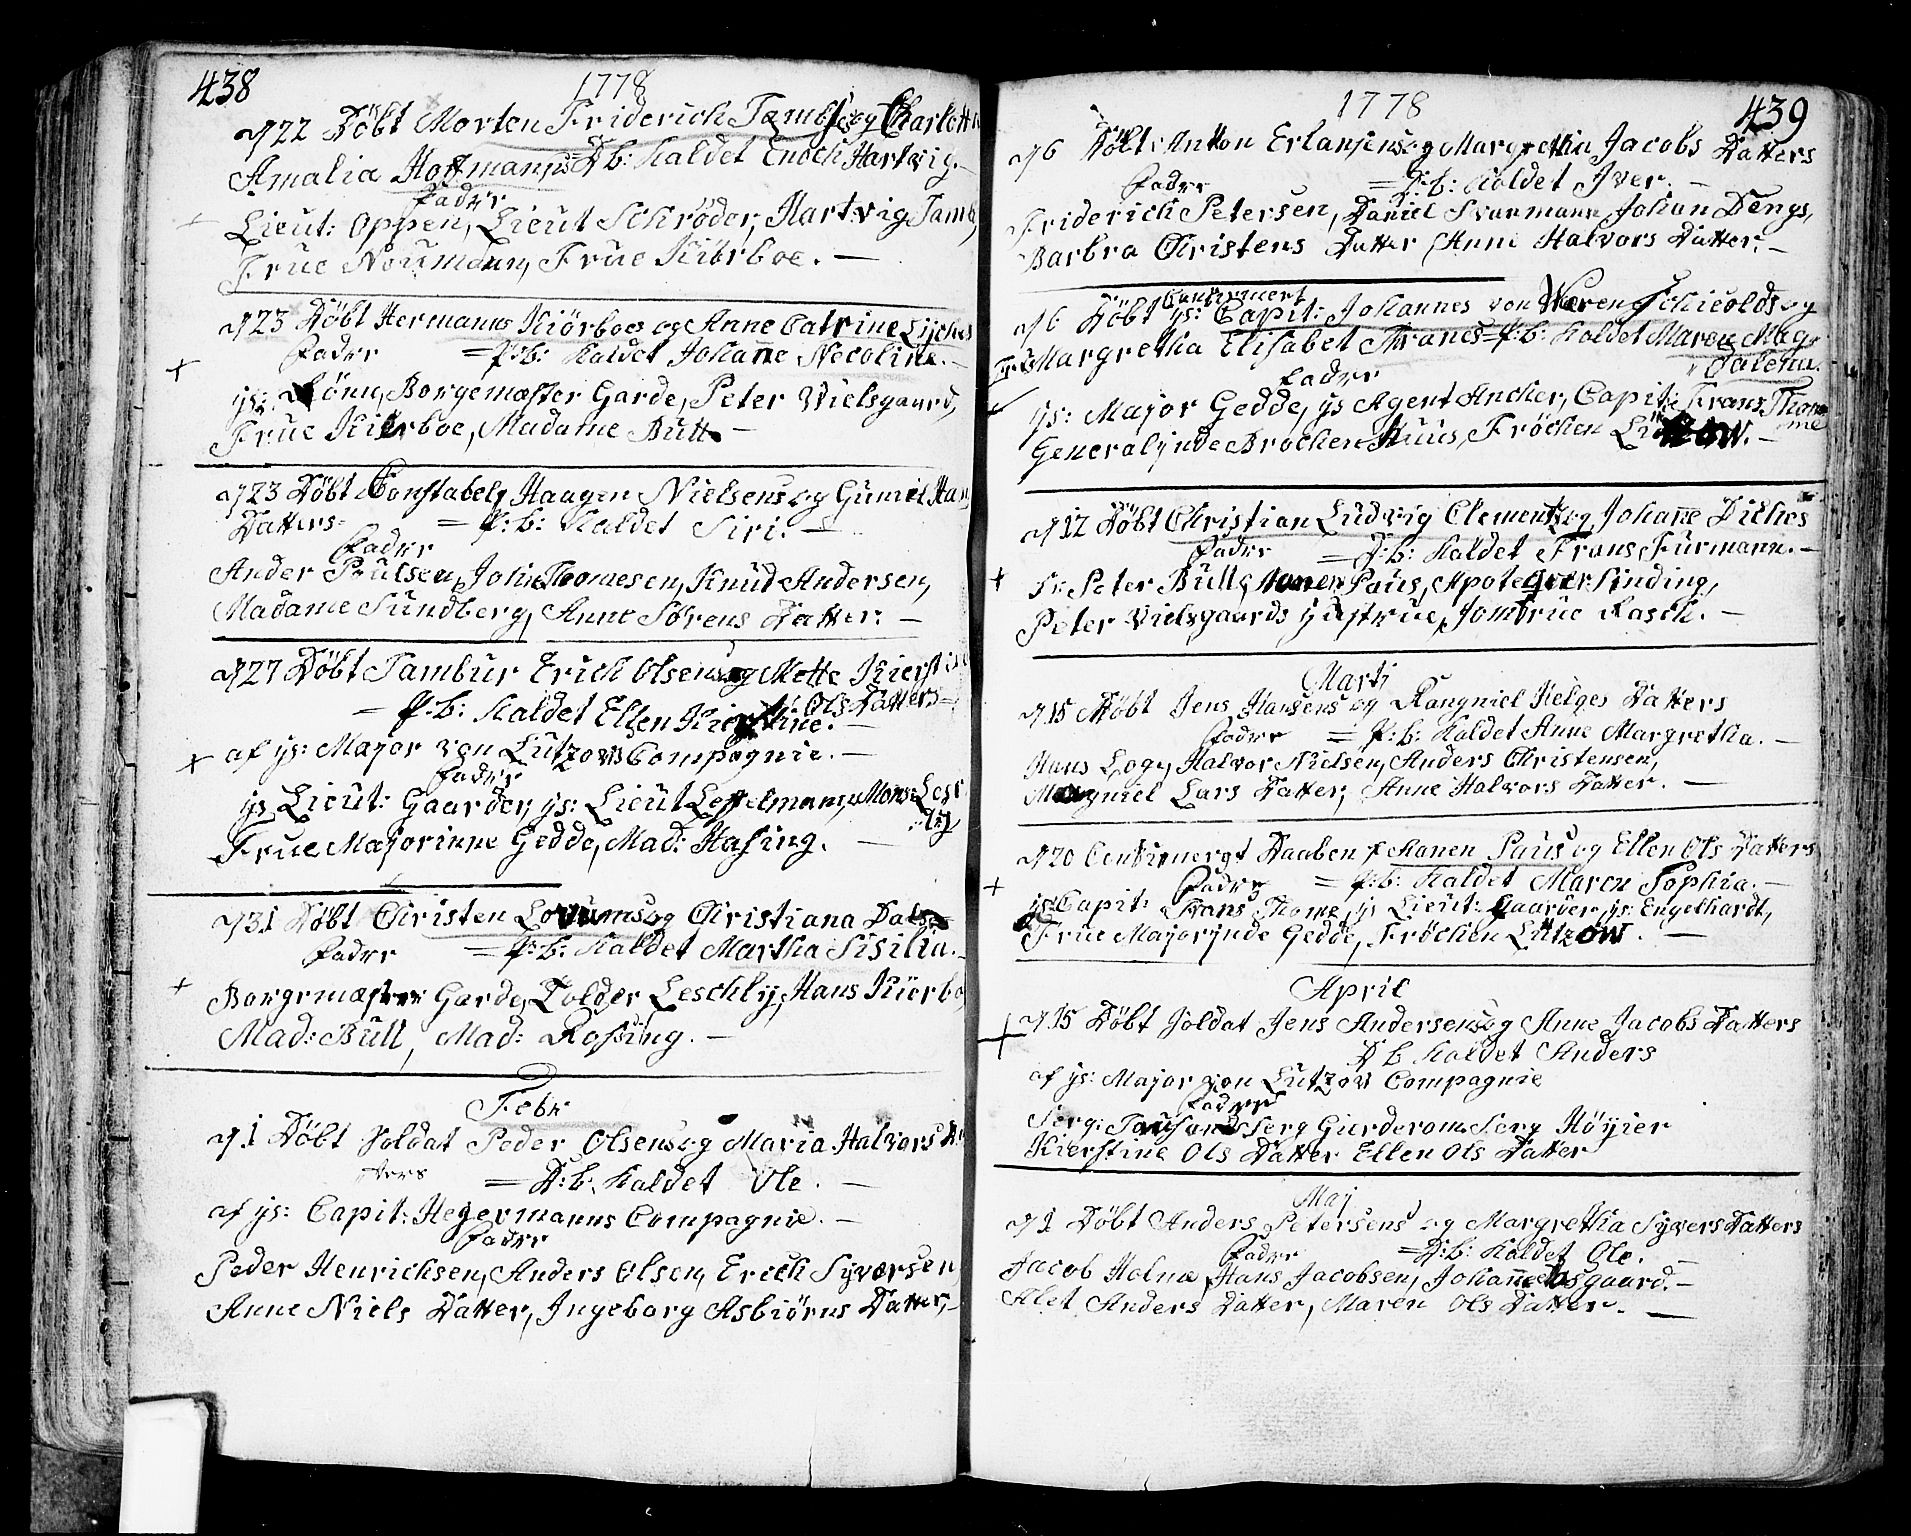 438
1778
d 22 Döbt Morten Friderich Tambs og Charlotte
Amalia Hoffmanns = D: b: Kaldet Enoch Hartvig. —
Fadre
Lieut: Oppen, Lieut Schröder, Hartvig Tamb,
Frue Noumann, Frue Kiörboe. —
d 23 Döbt Hermanns Kiörboes og Anne Catrine
Fadre = P: b: Kaldet Johanne Necoline. —
Borgemæster Garde, Peter Vielsgaard,
Frue Kiörboe, Madame Bull —
d 23 Döbt Constabels Haagen Nielsens og Guniel Han
Datters = P: b: Kaldet Siri. —
Fadre
Ander Poulsen, John Thomesen, Knud Andersen,
Madame Sundberg, Anne Sörens Datter: —
d 27 Döbt Tambur Erich Olsens og Mette Kierstine
Ols Datters =
— P: b: Kaldet Ellen Kierstine. —
af Hr: Major von Lützows Compagnie. —
Fadre
Hr Lieut: Gaarder, Hr: Lieut Leffelmann, Mons:
Frue Majorinne Gedde, Mad: Hasing. —
d 31 Döbt Christen og Christiana Dals
Fadre = P: b: Kaldet Martha Sisilia. —
Borgemæster Garde, Tolder Leschly, Hans Kiörbo,
Mad: Bull, Mad: Rossing. —
Febr
d 1 Döbt Soldat Peder Olsens og Maria Halvors Da
tters = D: b: Kaldet Ole. —
af Hr: Capit: Hegermanns Compagnie. —
Fadre
Peder Henrichsen, Anders Olsen, Erich Syversen
Anne Niels Datter, Ingeborg Asbiörns Datter, —
1778
439
d 6 Döbt Anton Erlansens og Margretha Jacobs Datters
Fadre = P: b: Kaldet Iver. —
Friderich Petersen, Daniel Svanmann, Johan Dengs,
Barbra Christens Datter, Anne Halvors Datter. —
Confirmert
d 6 Döbt Hr: Capit: Johannes von Weren Schiolds og
Margretha Elisabet Francs = P: b: Kaldet Maren Mag
Dalena.
Fadre
Hr: Major Gedde, Hr Agent Ancher, Capit: Frans Thom
me
Generalinde Brochenhuus, Fröchen Lützow. —
d 12 Döbt Christian Ludvig Clements og Johanne Diches
Fadre = D: b: Kaldet Frans Furmann. —
Sr: Peter Bull, Monen Paus, Apoteqver Sinding,
Peter Vielsgaards Hustrue, Jomfrue Rasch. —
Marti
d 15 Döbt Jens Hansens og Rangniel Helges Datters
Fadre = P: b: Kaldet Anne Margretha. —
Hans Loge, Halvor Nielsen, Anders Christensen,
Magniel Lars Datter, Anne Halvors Datter. —
d 20 Daaben f Monen Paus og Ellen Ols Datters
Fadre = P: b: Kaldet Maren Sophia. —
Hr Capit: Frans Thome, Hr Lieut: Gaarder, Hr: Engelhardt,
Frue Majorinde Gedde, Fröchen Lützow. —
April
d 15 Döbt Soldat Jens Andersens og Anne Jacobs Datters
D b Kaldet Anders
af Hr: Major von Lützow Compagnie
Fadre
Serg: Serg Gierderom, Serg Höyier
Kierstine Ols Datter Ellen Ols Datter
Maj
d 1 Döbt Anders Petersens og Margretha Syvers Datters
Fadre = D: b: Kaldet Ole. —
Jacob Holm, Hans Jacobsen, Johannes Aasgaard. —
Alet Anders Datter, Maren Ols Datter. —